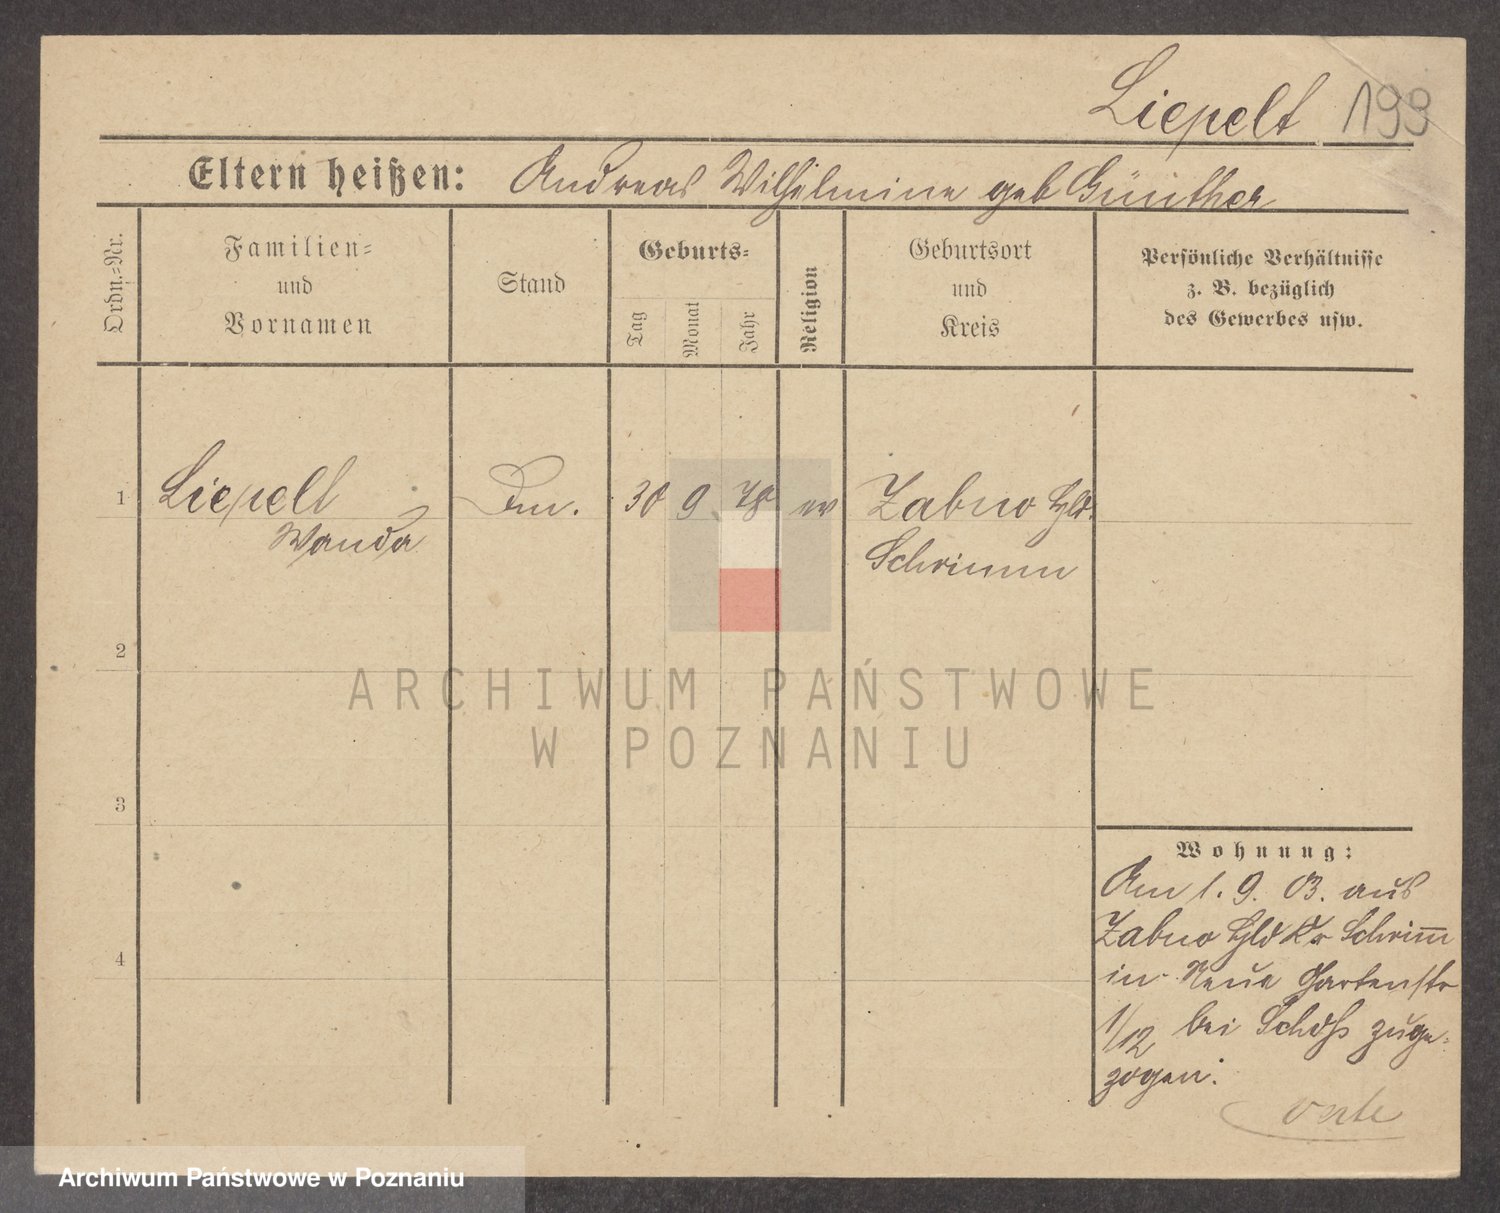 Liepelt 199
Eltern heißen: Andreas Wilhelmine geb Günther
Ordn.=Nr.
Familien=
und
Vornamen
Stand
Geburts=
Tag
Monat
Jahr
Religion
Geburtsort
und
Kreis
Persönliche Verhältnisse
z. B. bezüglich
des Gewerbes usw.
1 Liepelt 30 9. 78 ev Zabno Hld.
Wanda Schrimm
2
3
4
Wohnung:
Am 1. 9. 03. aus
Zabno Hld Kr Schrim̅
in Neue Gartenstr
1/12 bei zuge-
zogen.
ARCHIWUM PAŃSTWOWE
W POZNANIU
Archiwum Państwowe w Poznaniu